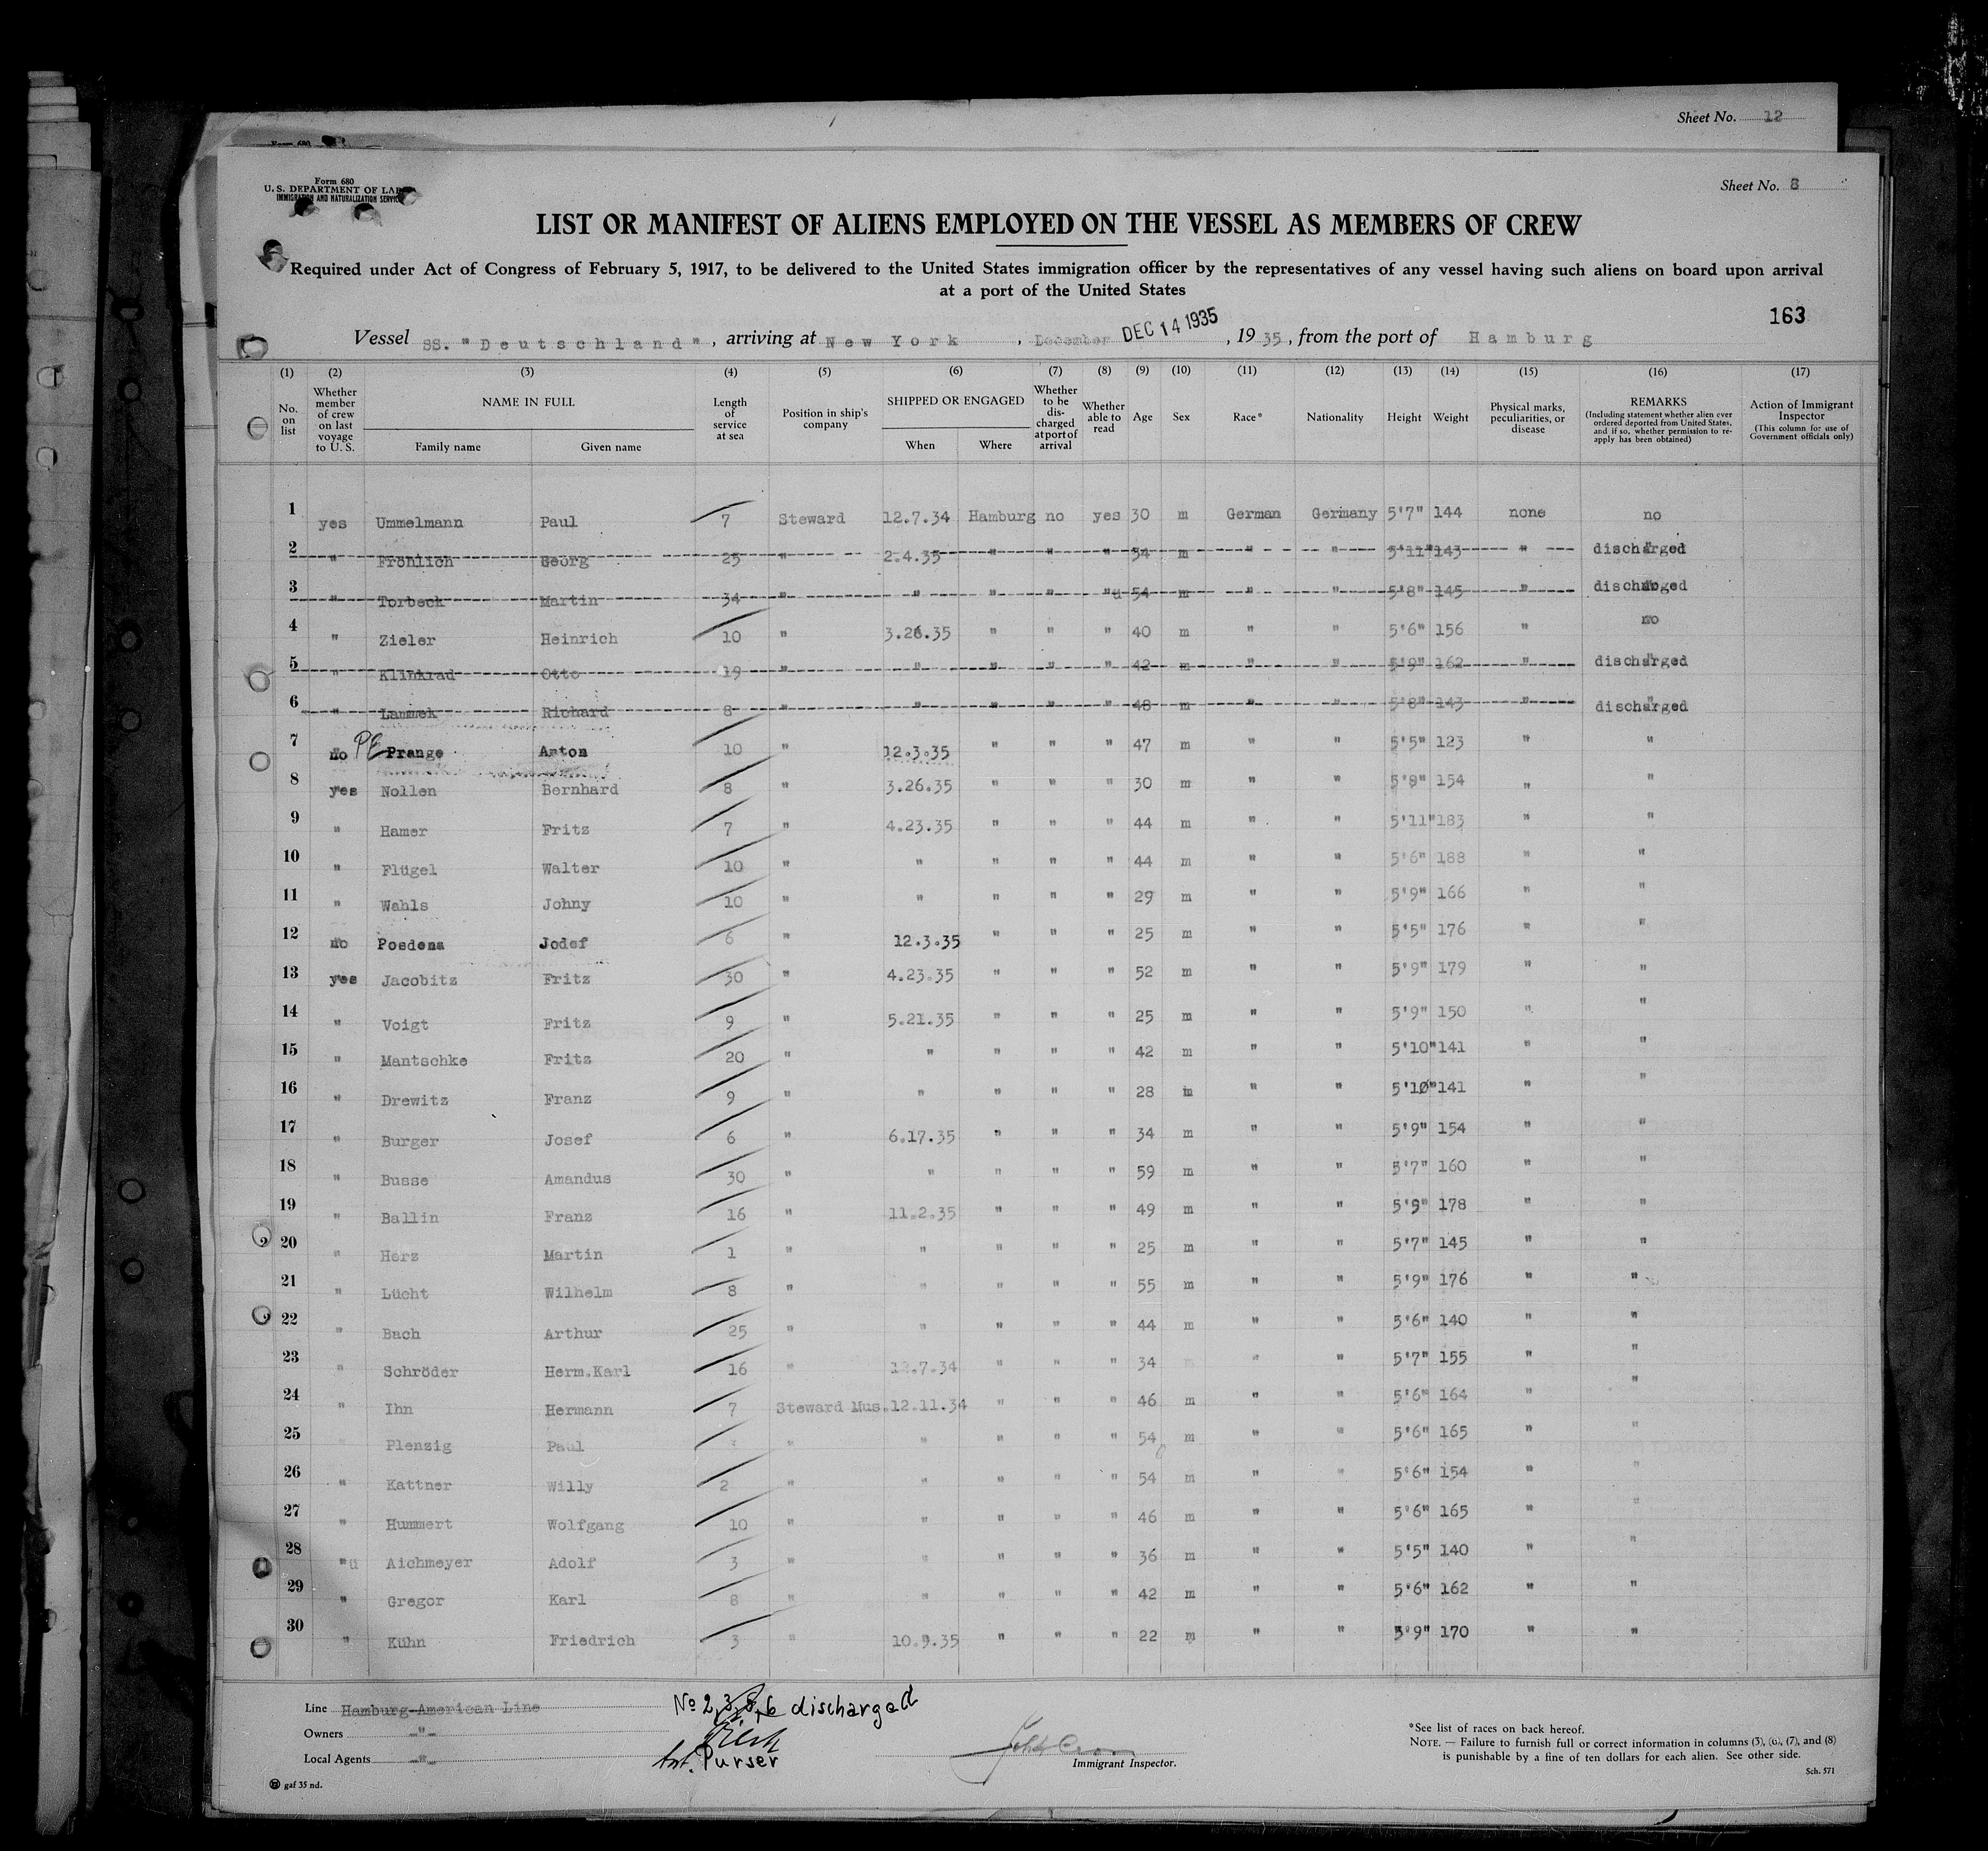 Sheet No. 12
Form 680
Sheet No. 8
Form 680
U. S. DEPARTMENT OF LAB
IMMIGRATION AND NATURALIZATION SERVICE
LIST OR MANIFEST OF ALIENS EMPLOYED ON THE VESSEL AS MEMBERS OF CREW
Required under Act of Congress of February 5, 1917, to be delivered to the United States immigration officer by the representatives of any vessel having such aliens on board upon arrival
at a port of the United States
163
Vessel SS. "Deutschland", arriving at New York, December DEC 14 1935, 1935, from the port of Hamburg
(1) (2) (3) (4) (5) (6) (7) (8) (9) (10) (11) (12) (13) (14) (15) (16) (17)
No. on list
Whether member of crew on last voyage to U. S.
NAME IN FULL
Family name
Given name
Length of service at sea
Position in ship's company
SHIPPED OR ENGAGED
When
Where
Whether to be discharged at port of arrival
Whether able to read
Age
Sex
Race*
Nationality
Height
Weight
Physical marks, peculiarities, or disease
REMARKS
(Including statement whether alien ever ordered deported from United States, and if so, whether permission to re-apply has been obtained)
Action of Immigrant Inspector
(This column for use of Government officials only)
1 yes Ummelmann Paul 7 Steward 12.7.34 Hamburg no yes 30 m German Germany 5'7" 144 none no
2 " Fröhlich Georg 25 " 2.4.35 " " " 54 m " " 5'11" 143 " discharged
3 " Torbeck Martin 34 " " " " " 54 m " " 5'8" 145 " discharged
4 " Zieler Heinrich 10 " 3.26.35 " " " 40 m " " 5'6" 156 " no
5 " Klinkrad Otto 19 " " " " " 42 m " " 5'9" 162 " discharged
6 " Lammek Richard 8 " " " " " 48 m " " 5'8" 143 " discharged
7 no PE Prange Anton 10 " 12.3.35 " " " 47 m " " 5'5" 123 " "
8 yes Nollen Bernhard 8 " 3.26.35 " " " 30 m " " 5'8" 154 " "
9 " Hamer Fritz 7 " 4.23.35 " " " 44 m " " 5'11" 183 " "
10 " Flügel Walter 10 " " " " " 44 m " " 5'6" 188 " "
11 " Wahls Johny 10 " " " " " 29 m " " 5'9" 166 " "
12 no Posdena Jodef 6 " 12.3.35 " " " 25 m " " 5'5" 176 " "
13 yes Jacobitz Fritz 30 " 4.23.35 " " " 52 m " " 5'9" 179 " "
14 " Voigt Fritz 9 " 5.21.35 " " " 25 m " " 5'9" 150 " "
15 " Mantschke Fritz 20 " " " " " 42 m " " 5'10" 141 " "
16 " Drewitz Franz 9 " " " " " 28 m " " 5'10" 141 " "
17 " Burger Josef 6 " 6.17.35 " " " 34 m " " 5'9" 154 " "
18 " Busse Amandus 30 " " " " " 59 m " " 5'7" 160 " "
19 " Ballin Franz 16 " 11.2.35 " " " 49 m " " 5'9" 178 " "
20 " Herz Martin 1 " " " " " 25 m " " 5'7" 145 " "
21 " Lücht Wilhelm 8 " " " " " 55 m " " 5'9" 176 " "
22 " Bach Arthur 25 " " " " " 44 m " " 5'6" 140 " "
23 " Schröder Herm.Karl 16 " 12.7.34 " " " 34 " " 5'7" 155 " "
24 " Ihn Hermann 7 Steward Mus. 12.11.34 " " " 46 m " " 5'6" 164 " "
25 " Plenzig Paul " " " " " 54 m " " 5'6" 165 " "
26 " Kattner Willy 2 " " " " " 54 m " " 5'6" 154 " "
27 " Hummert Wolfgang 10 " " " " " 46 m " " 5'6" 165 " "
28 "ü Aichmeyer Adolf 3 " " " " " 36 m " " 5'5" 140 " "
29 " Gregor Karl 8 " " " " " 42 m " " 5'6" 162 " "
30 " Kühn Friedrich 3 " 10.9.35 " " " 22 m " " 5'9" 170 " "
Line Hamburg-American Line
Owners -"-
Local Agents -"-
No 2,3,5,6 discharged
Purser
Immigrant Inspector.
*See list of races on back hereof.
NOTE. — Failure to furnish full or correct information in columns (3), (6), (7), and (8)
is punishable by a fine of ten dollars for each alien. See other side.
Sch. 571
gaf 35 nd.